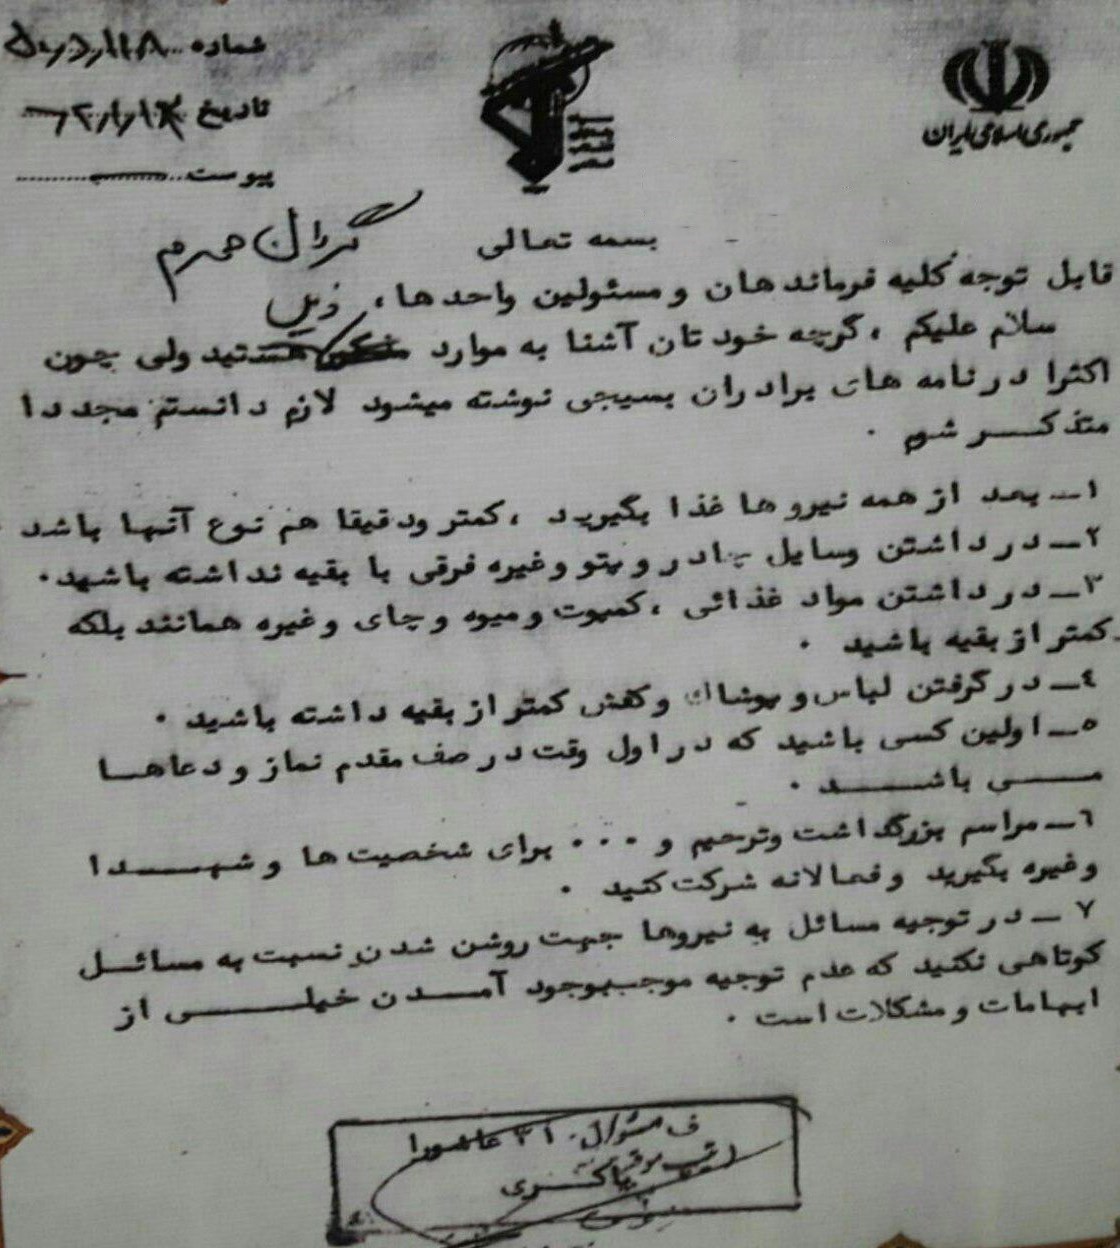 جمهوری اسلامی ایران
شماره
تاریخ
پیوست
بسمه تعالی
قابل توجه کلیه فرماندهان و مسئولین واحدها،
ذیل
سلام علیکم ، گرچه خودتان آشنا به موارد هستید ولی چون
اکثرا در نامه های برادران بسیجی نوشته میشود لازم دانستم مجددا
متذکر شوم .
۱ــ بعد از همه نیروها غذا بگیرید ، کمتر ودقیقا هم نوع آنها باشد
۲ــ در داشتن وسایل چادر و پتو وغیره فرقی با بقیه نداشته باشید.
۳ــ در داشتن مواد غذائی ، کمپوت و میوه و چای وغیره همانند بلکه
کمتر از بقیه باشید .
٤ــ در گرفتن لباس و پوشاک وکفش کمتر از بقیه داشته باشید .
۵ــ اولین کسی باشید که در اول وقت در صف مقدم نماز و دعاها
می باشد .
٦ــ مراسم بزرگداشت وترحیم و ... برای شخصیت ها و شهدا
وغیره بگیرید و فعالانه شرکت کنید .
۷ــ در توجیه مسائل به نیروها جهت روشن شدن نسبت به مسائل
کوتاهی نکنید که عدم توجیه موجب بوجود آمدن خیلی از
ابهامات و مشکلات است .
ف مسئول ۳۱ عاشورا
باکری